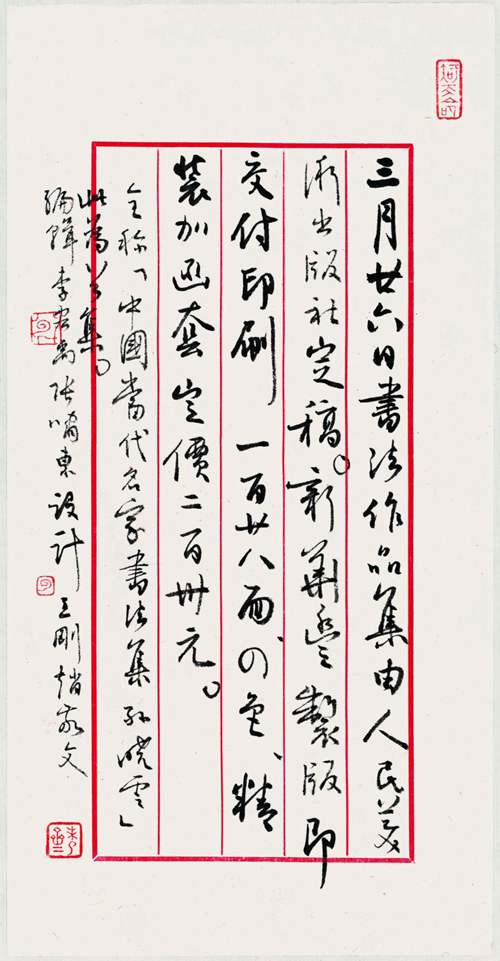 三月廿六日書法作品集由人民美
術出版社定稿。新華製版即
交付印刷 一百廿八面、四色、精
裝加函套定價二百元。
全稱「中國當代名家書法集 孫曉雲」
此為集。
編輯 李宏禹 張嘯東 設計 王剛 趙文